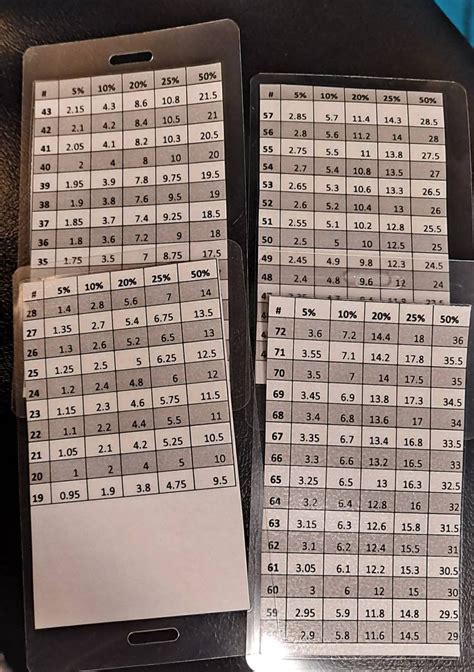 # 5% 10% 20% 25% 50%
43 2.15 4.3 8.6 10.8 21.5
42 2.1 4.2 8.4 10.5 21
41 2.05 4.1 8.2 10.3 20.5
40 2 4 8 10 20
39 1.95 3.9 7.8 9.75 19.5
38 1.9 3.8 7.6 9.5 19
37 1.85 3.7 7.4 9.25 18.5
36 1.8 3.6 7.2 9 18
35 1.75 3.5 7 8.75 17.5
# 5% 10% 20% 25% 50%
57 2.85 5.7 11.4 14.3 28.5
56 2.8 5.6 11.2 14 28
55 2.75 5.5 11 13.8 27.5
54 2.7 5.4 10.8 13.5 27
53 2.65 5.3 10.6 13.3 26.5
52 2.6 5.2 10.4 13 26
51 2.55 5.1 10.2 12.8 25.5
50 2.5 5 10 12.5 25
49 2.45 4.9 9.8 12.3 24.5
48 2.4 4.8 9.6 12 24
# 5% 10% 20% 25% 50%
28 1.4 2.8 5.6 7 14
27 1.35 2.7 5.4 6.75 13.5
26 1.3 2.6 5.2 6.5 13
25 1.25 2.5 5 6.25 12.5
24 1.2 2.4 4.8 6 12
23 1.15 2.3 4.6 5.75 11.5
22 1.1 2.2 4.4 5.5 11
21 1.05 2.1 4.2 5.25 10.5
20 1 2 4 5 10
19 0.95 1.9 3.8 4.75 9.5
# 5% 10% 20% 25% 50%
72 3.6 7.2 14.4 18 36
71 3.55 7.1 14.2 17.8 35.5
70 3.5 7 14 17.5 35
69 3.45 6.9 13.8 17.3 34.5
68 3.4 6.8 13.6 17 34
67 3.35 6.7 13.4 16.8 33.5
66 3.3 6.6 13.2 16.5 33
65 3.25 6.5 13 16.3 32.5
64 3.2 6.4 12.8 16 32
63 3.15 6.3 12.6 15.8 31.5
62 3.1 6.2 12.4 15.5 31
61 3.05 6.1 12.2 15.3 30.5
60 3 6 12 15 30
59 2.95 5.9 11.8 14.8 29.5
2.9 5.8 11.6 14.5 29